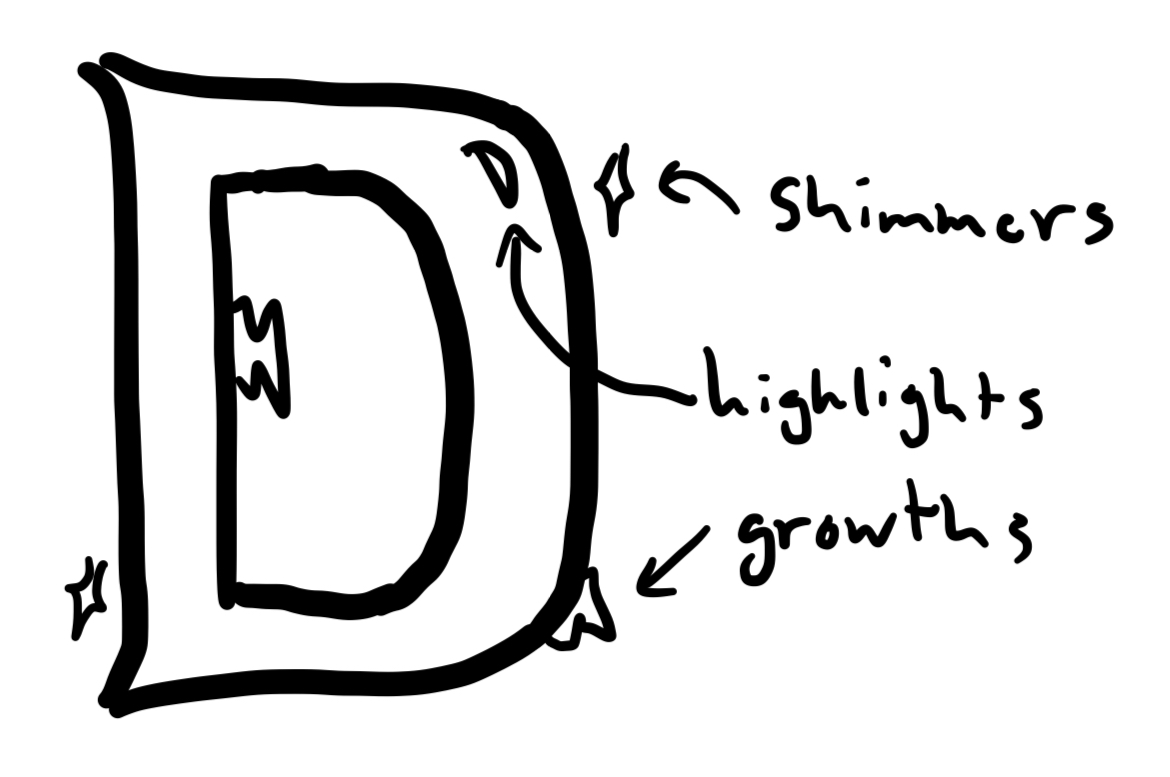 D
shimmers
highlights
growths